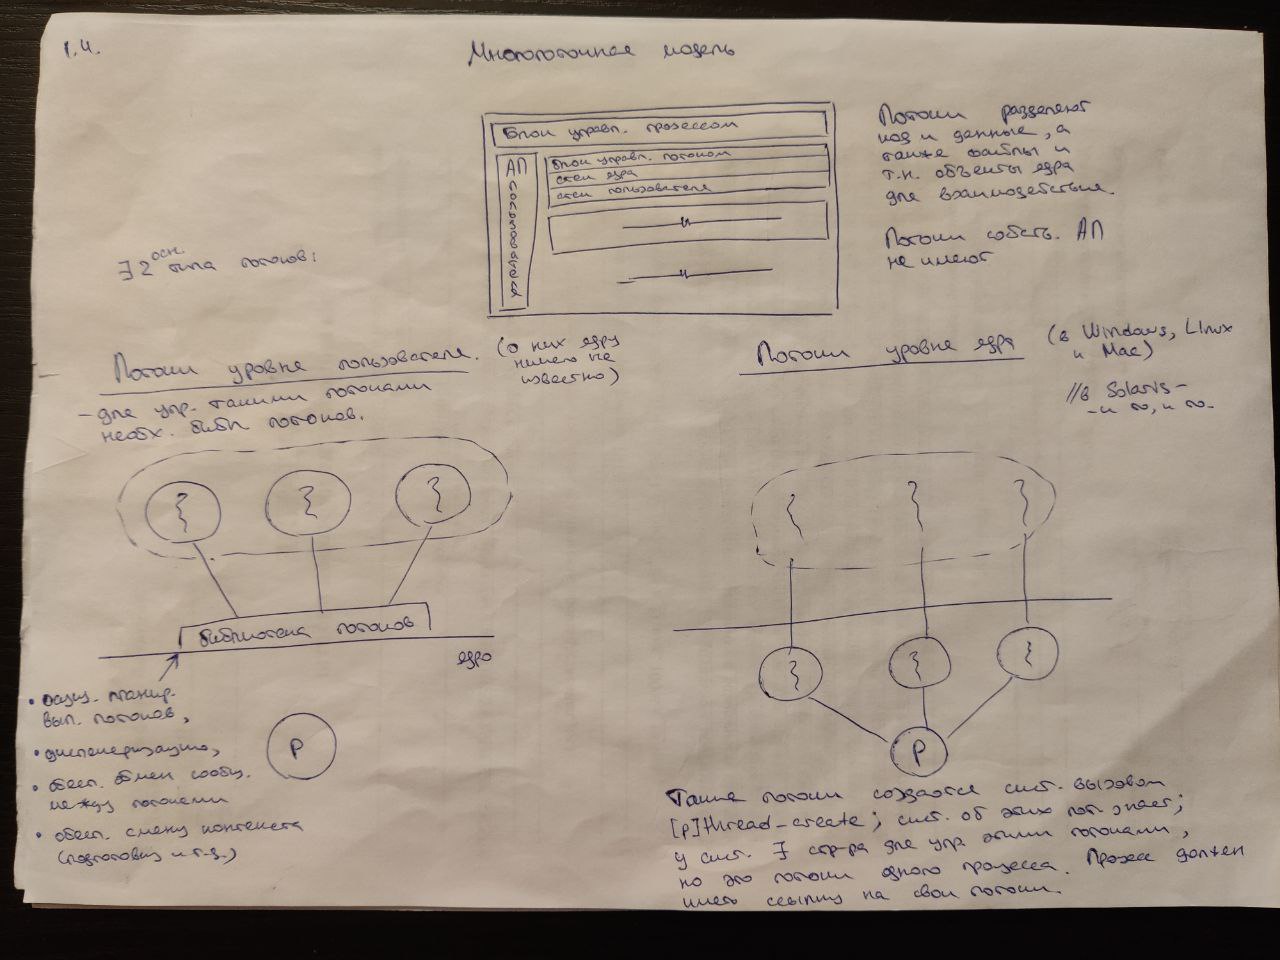 1.4.
Многопоточная модель
Блок управл. процессом
АП пользователя
блок управл. потоком
стек ядра
стек пользователя
Потоки разделяют
код и данные, а
также файлы и
т.н. объекты ядра
для взаимодействия.
Потоки собств. АП
не имеют
∃ 2 осн. типа потоков:
Потоки уровня пользователя.
(о них ядру
ничего не
известно)
- для упр. такими потоками
необх. библ потоков.
библиотека потоков
ядро
• функ. планир.
вып. потоков,
• диспетчеризацию,
• обесп. обмен сообщ.
между потоками
• обесп. смену контекста
(подготовку и т.д.)
P
Потоки уровня ядра
(в Windows, Linux
и Mac)
//в Solaris -
- и то, и то.
P
Такие потоки создаются сист. вызовом
[p]thread_create; сист. об этих пот. знает;
у сист. ∃ стр-ра для упр. этими потоками,
но это потоки одного процесса. Процесс должен
иметь ссылку на свои потоки.